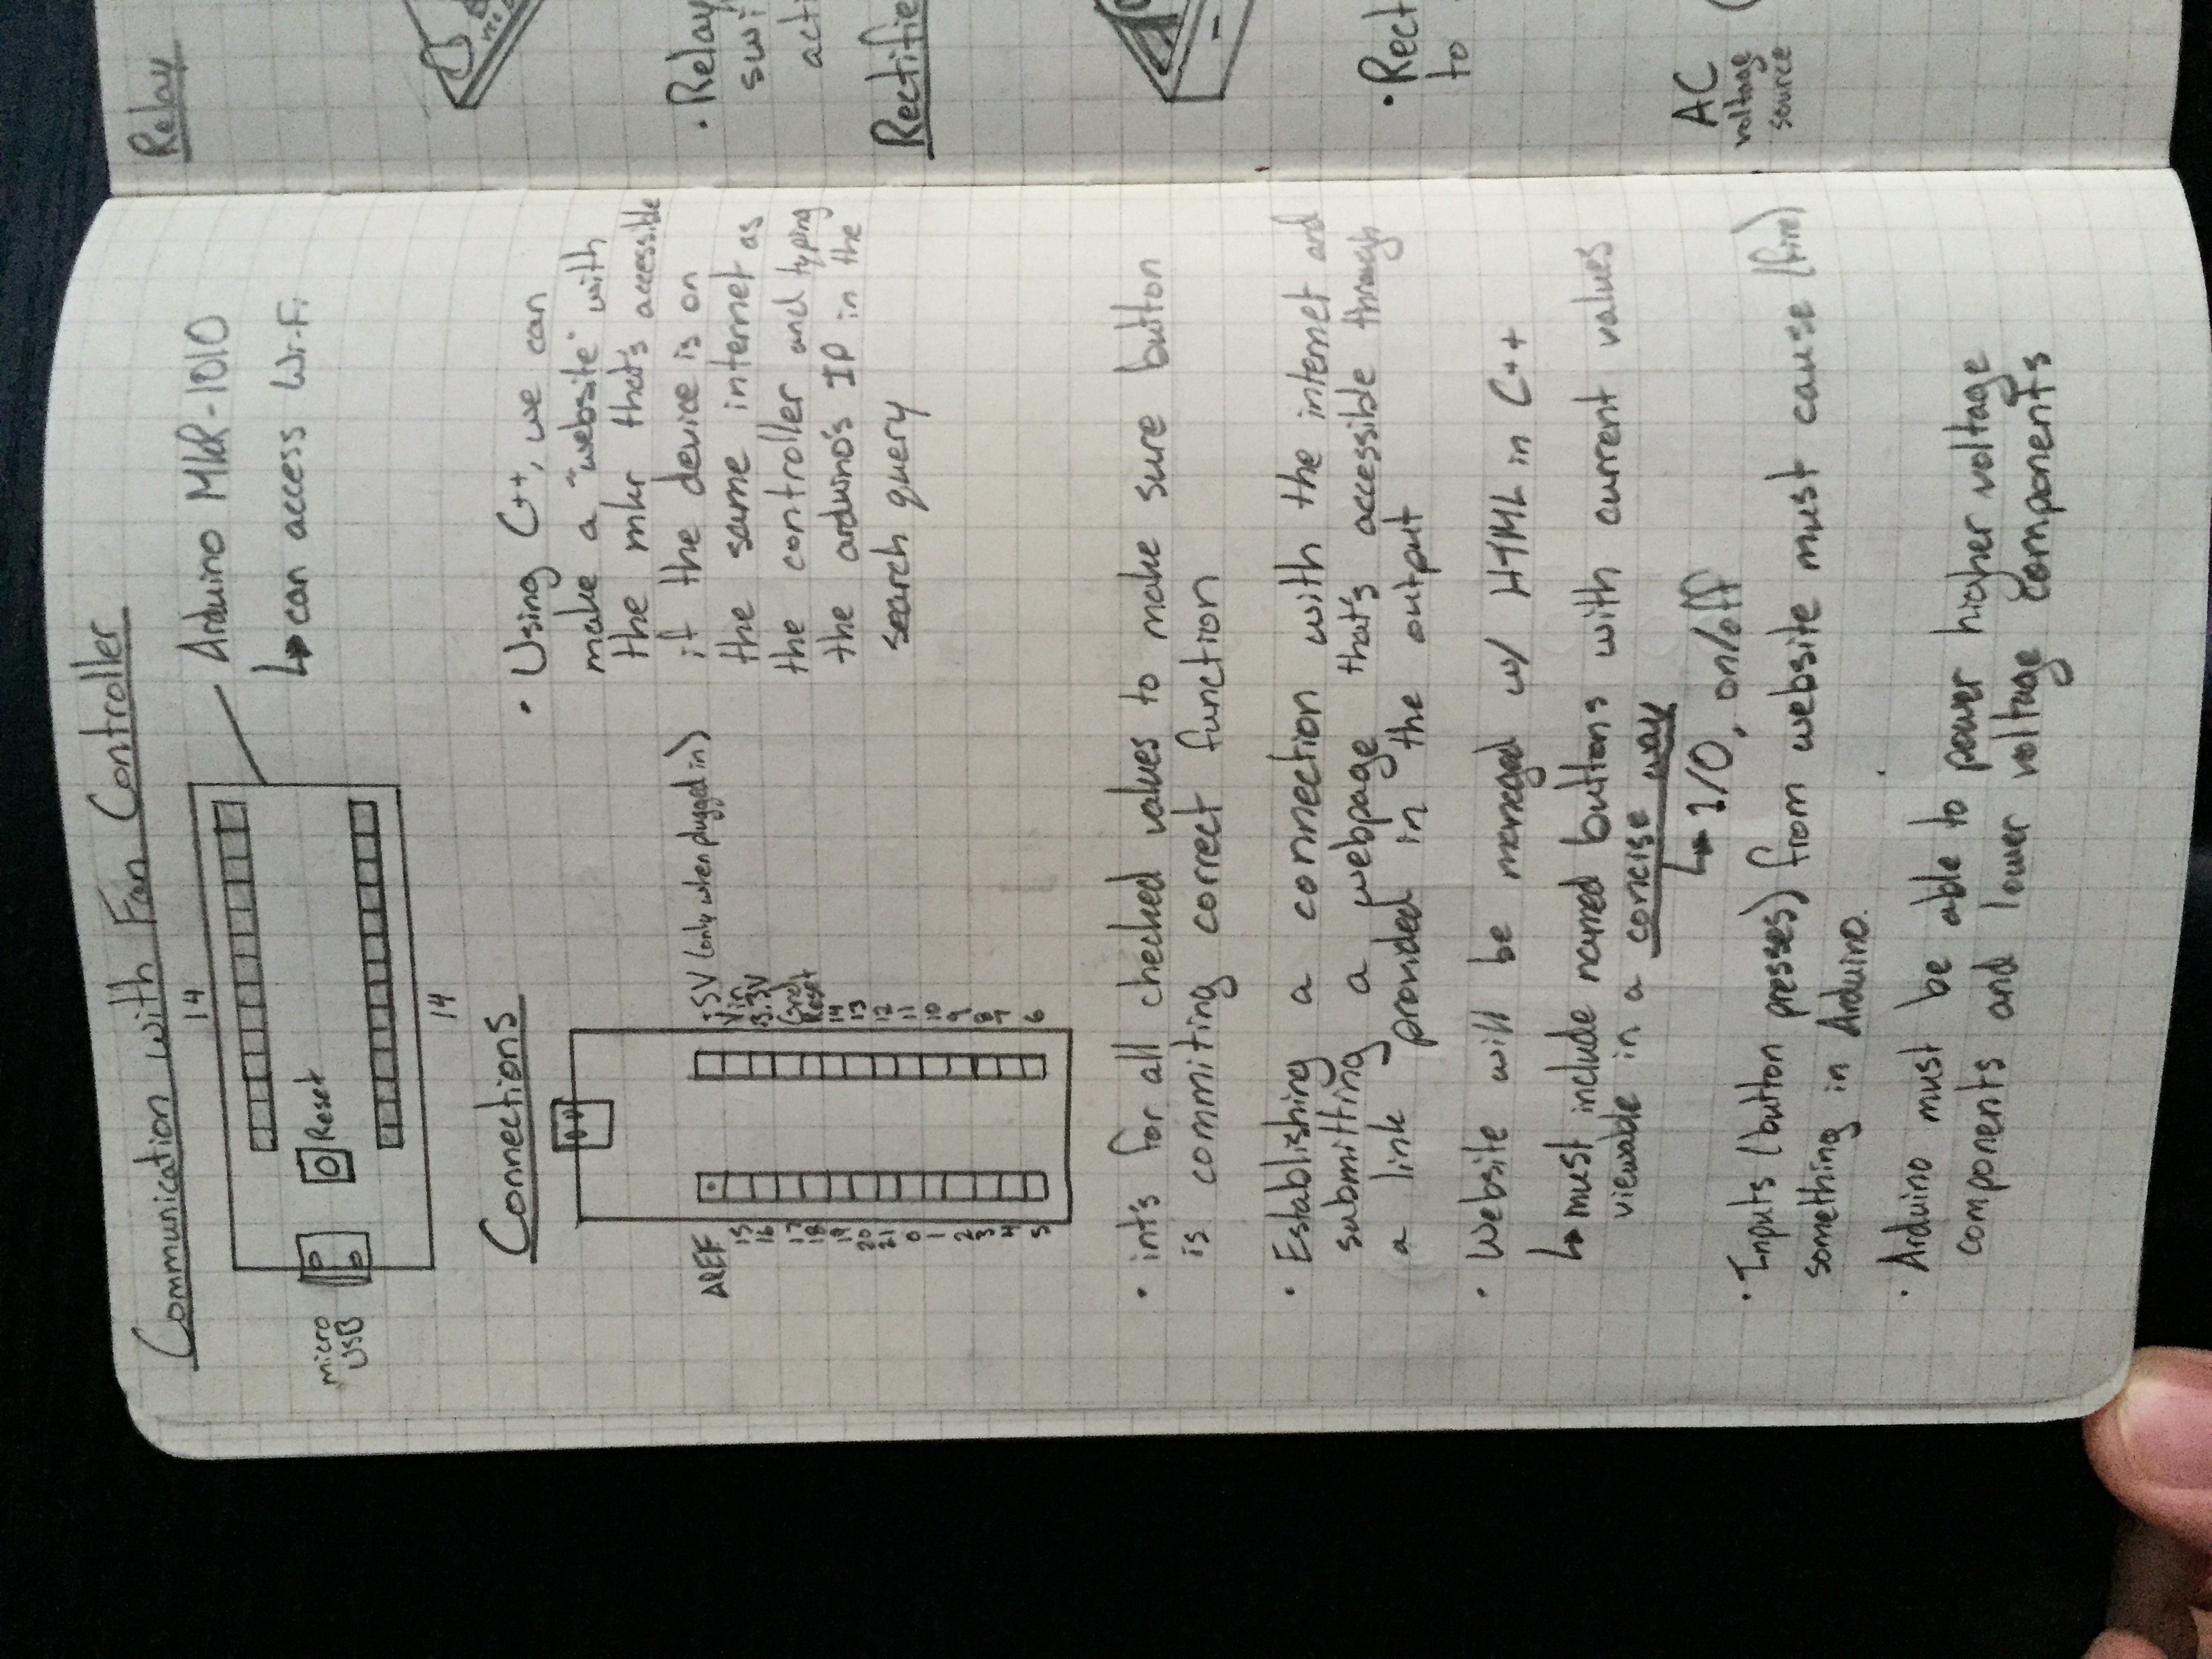 Communication with Fan Controller
14
Arduino MKR-1010
↳ can access Wi-Fi
micro
USB
Reset
14
Connections
AREF
15
16
17
18
19
20
21
0
1
2
3
4
5
+5V (only when plugged in)
Vin
3.3V
Gnd
Reset
14
13
12
11
10
9
8
7
6
· Using C++, we can
make a "website" with
the mkr that's accessible
if the device is on
the same internet as
the controller and typing
the arduino's IP in the
search query
· int's for all checked values to make sure button
is commiting correct function
· Establishing a connection with the internet and
submitting a webpage that's accessible through
a link provided in the output
· Website will be managed w/ HTML in C++
↳ must include named buttons with current values
viewable in a concise way
↳ 1/0, on/off
· Inputs (button presses) from website must cause (fire)
something in Arduino.
· Arduino must be able to power higher voltage
components and lower voltage components
Relay
· Relay
swi
acti
Rectifie
· Rect
to
AC
voltage
source